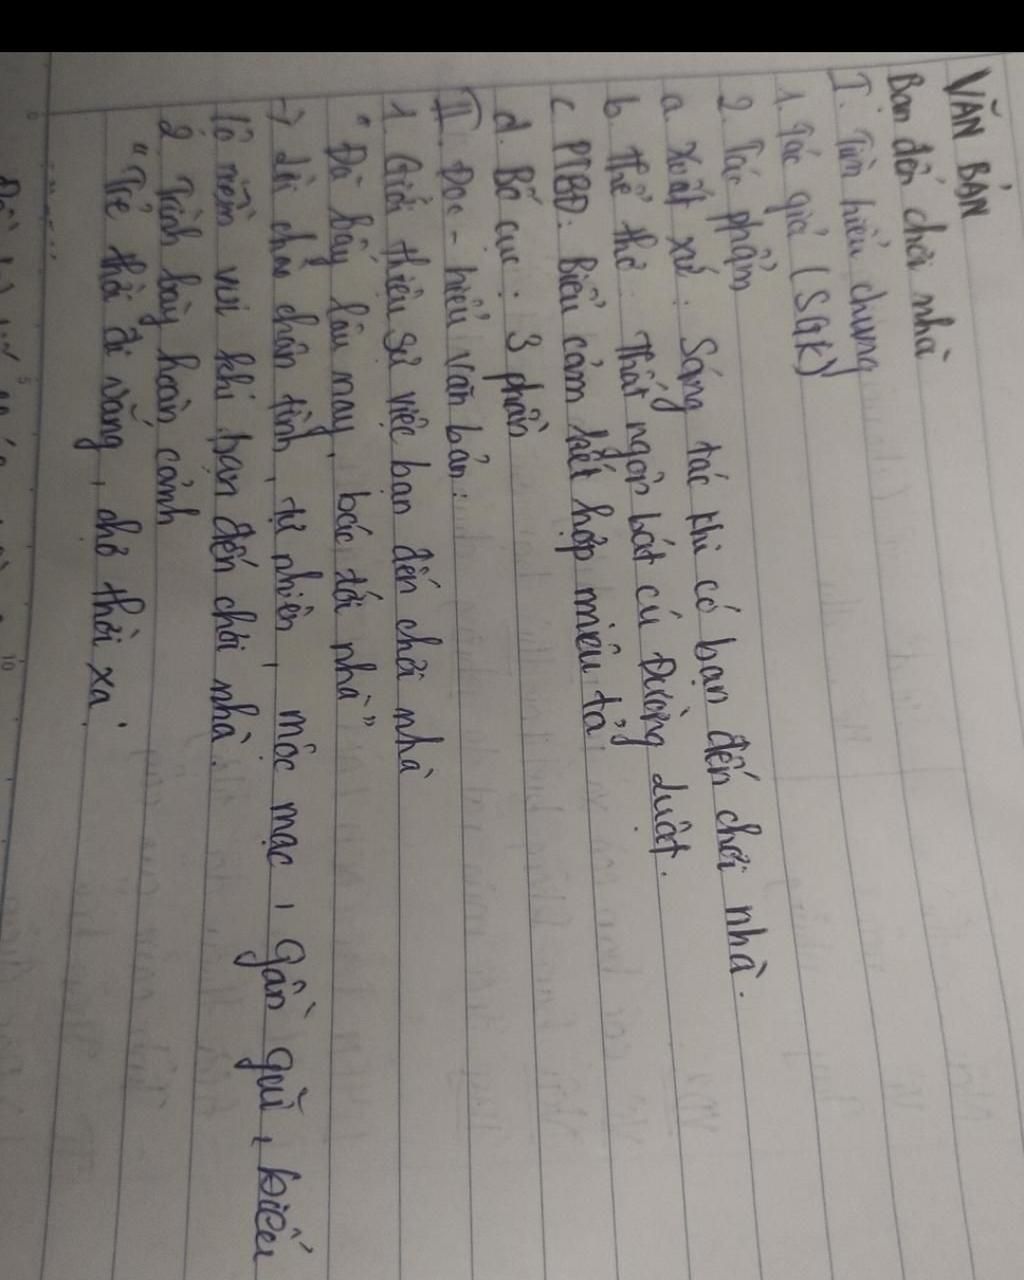 VĂN BẢN
Bạn đến chơi nhà
I. Tìm hiểu chung
1. Tác giả (SGK)
2. Tác phẩm
a. Xuất xứ: Sáng tác khi có bạn đến chơi nhà.
b. Thể thơ: Thất ngôn bát cú Đường luật.
c. PTBĐ: Biểu cảm kết hợp miêu tả
d. Bố cục: 3 phần
II. Đọc - hiểu văn bản:
1. Giới thiệu sự việc bạn đến chơi nhà
"Đã bấy lâu nay, bác tới nhà"
-> Lời chào chân tình, tự nhiên, mộc mạc, gần gũi, biểu
lộ niềm vui khi bạn đến chơi nhà.
2. Trình bày hoàn cảnh
"Trẻ thời đi vắng, chợ thời xa"